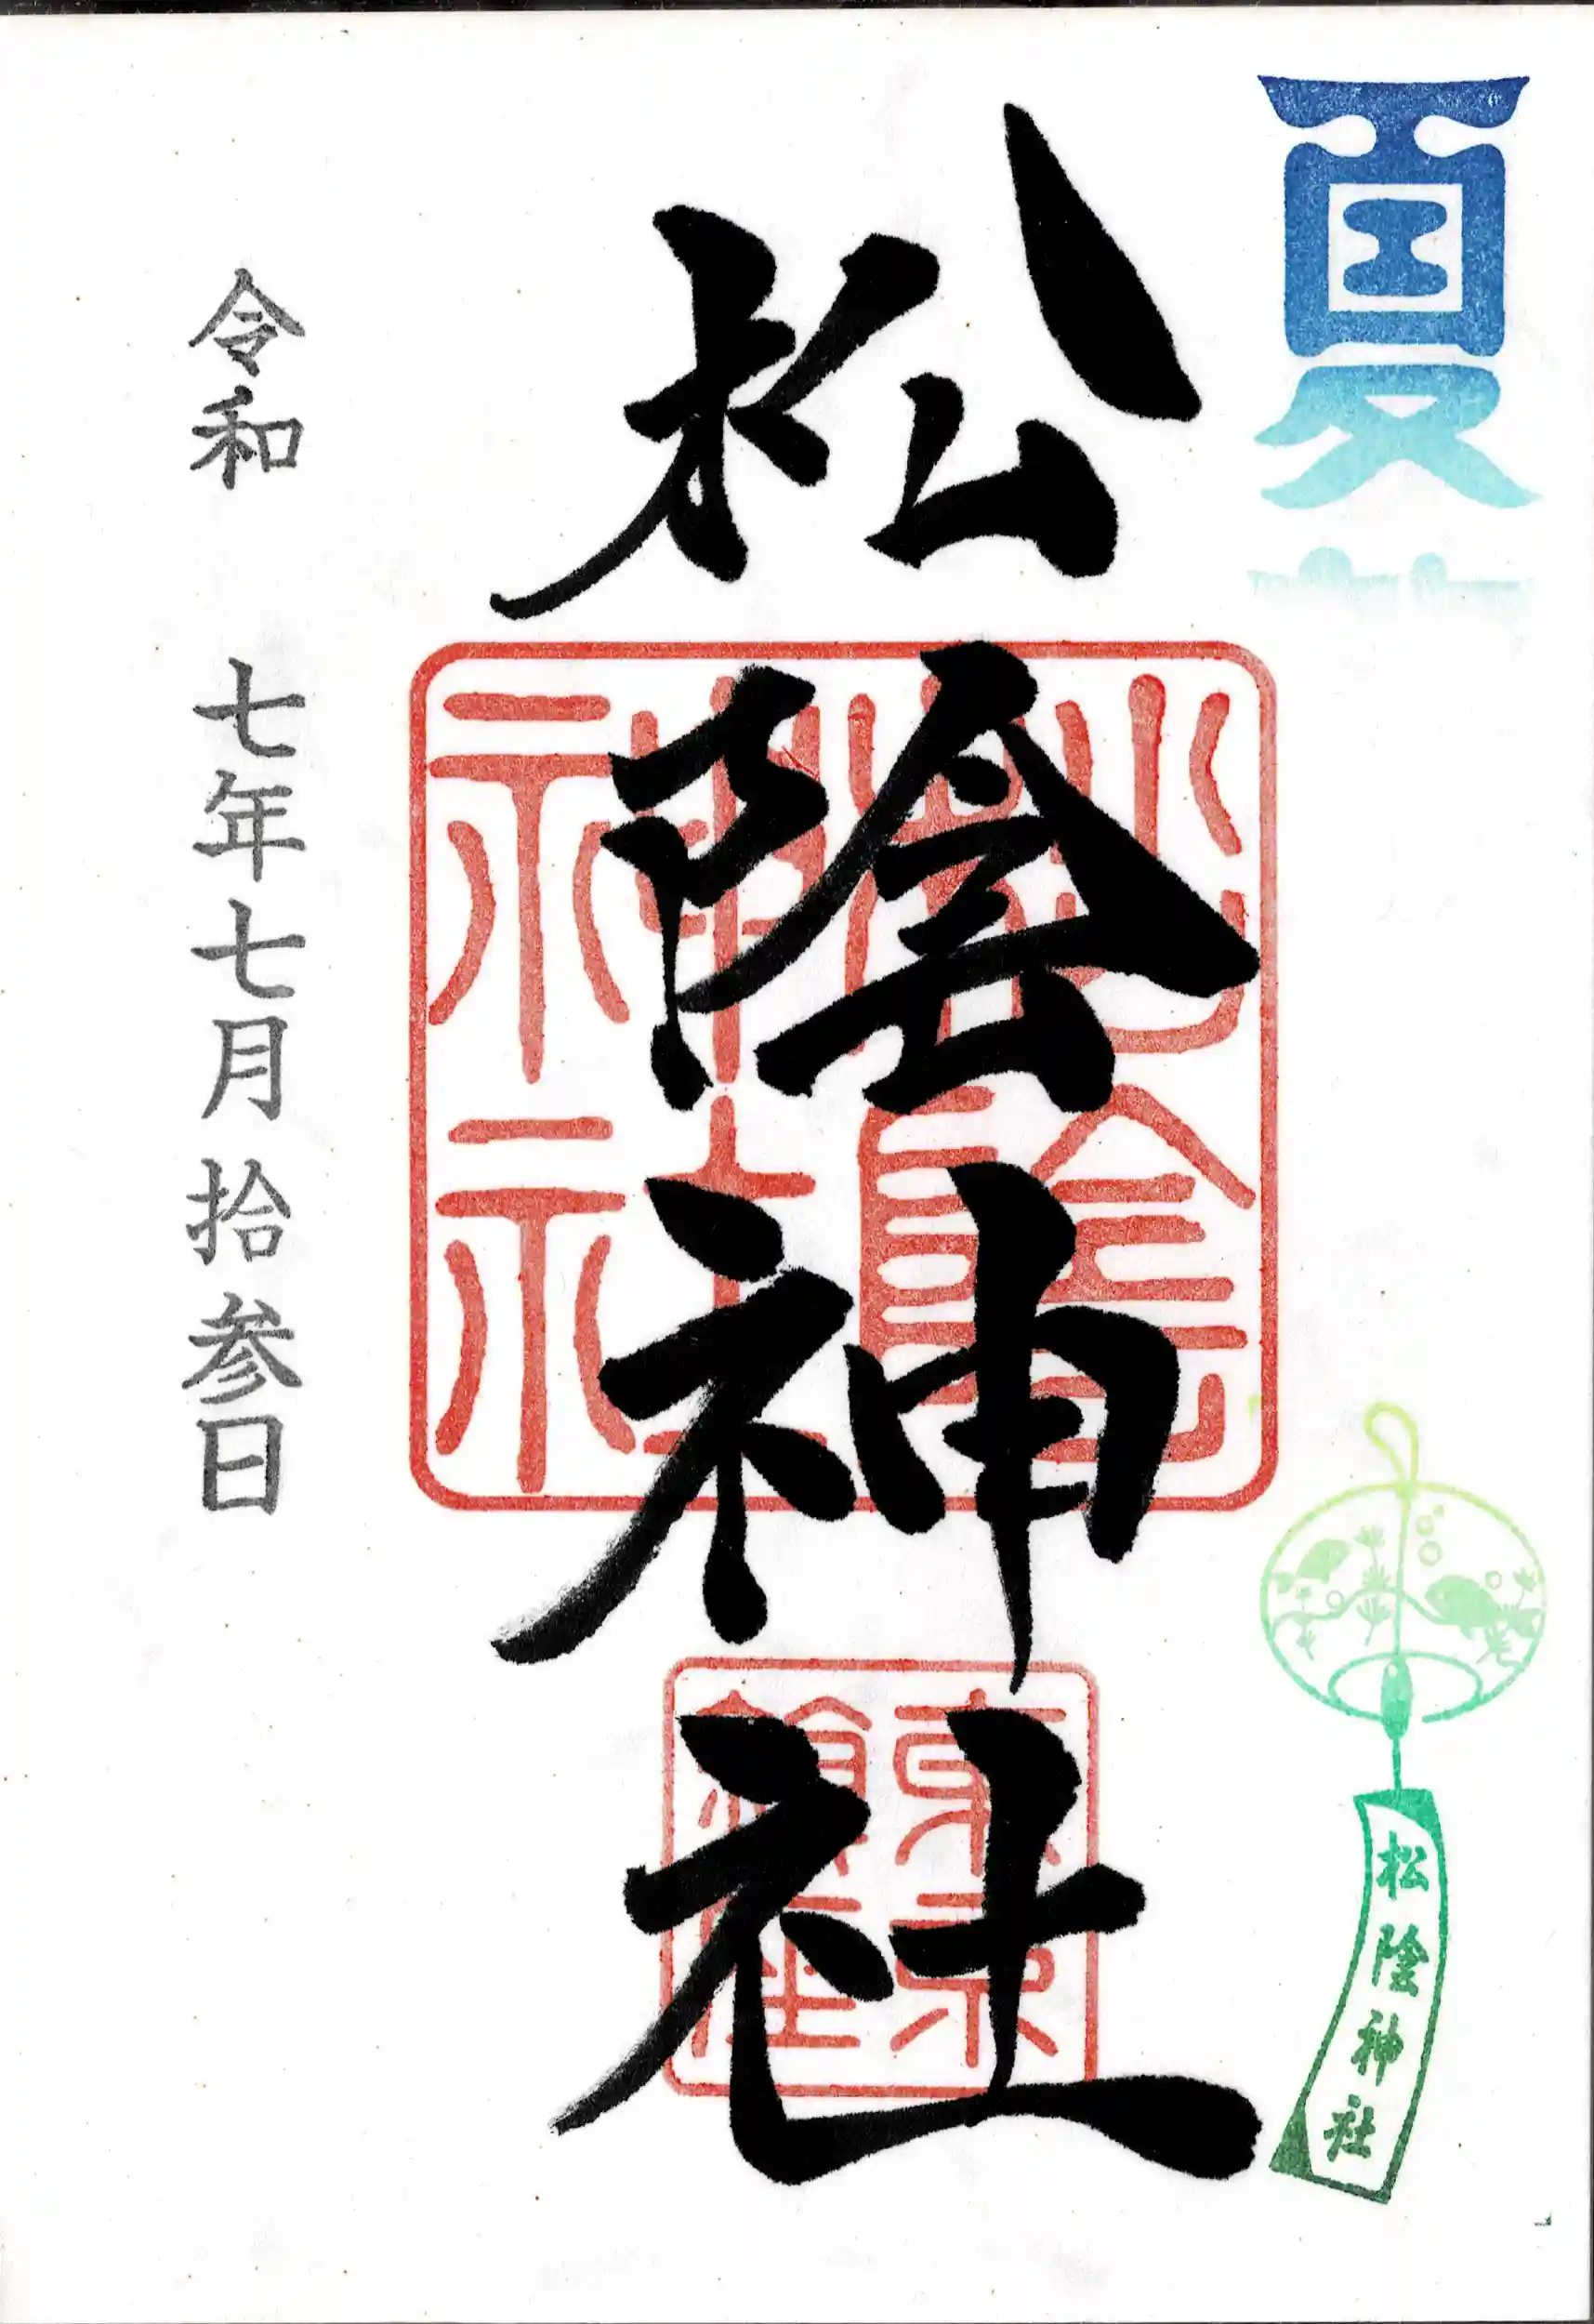 夏
松陰神社
松陰神社
松陰神社
東京
令和 七年七月拾参日